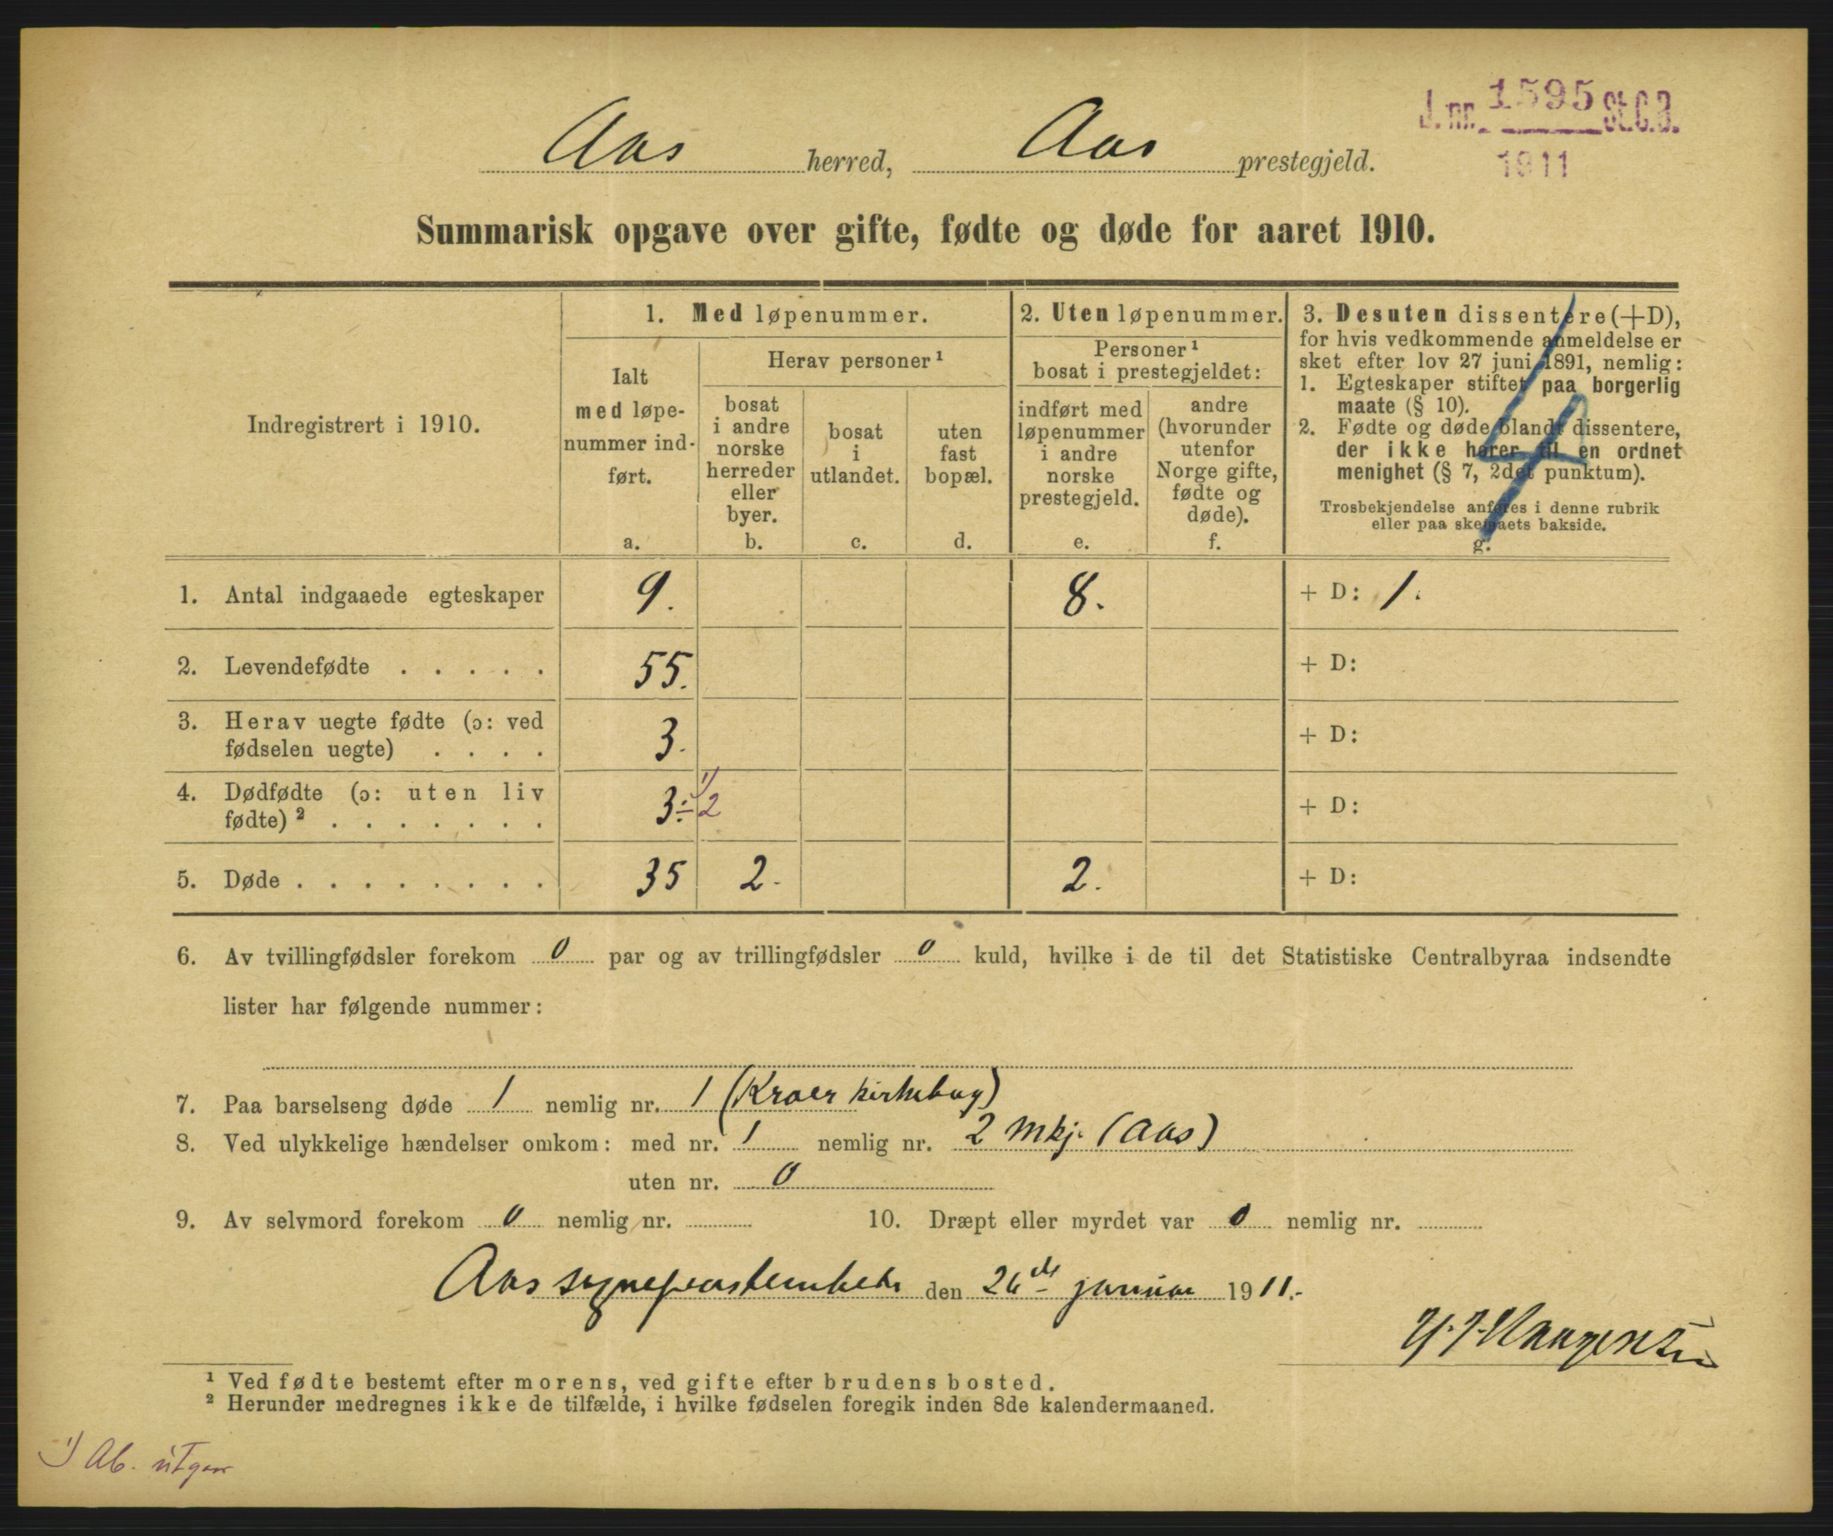 J. nr. 1595 St.C.B.
1911
Aas herred, Aas prestegjeld.
Summarisk opgave over gifte, fødte og døde for aaret 1910.
Indregistrert i 1910.
1. Med løpenummer.
Ialt
med løpe-
nummer ind-
ført.
a.
Herav personer ¹
bosat
i andre
norske
herreder
eller
byer.
b.
bosat
i
utlandet.
c.
uten
fast
bopæl.
d.
2. Uten løpenummer.
Personer ¹
bosat i prestegjeldet:
indført med
løpenummer
i andre
norske
prestegjeld.
e.
andre
(hvorunder
utenfor
Norge gifte,
fødte og
døde).
f.
3. Desuten dissentere (+D),
for hvis vedkommende anmeldelse er
sket efter lov 27 juni 1891, nemlig:
1. Egteskaper stiftet paa borgerlig
maate (§ 10).
2. Fødte og døde blandt dissentere,
der ikke hører til en ordnet
menighet (§ 7, 2det punktum).
Trosbekjendelse anføres i denne rubrik
eller paa skemaets bakside.
g.
1. Antal indgaaede egteskaper 9. 8. + D: 1.
2. Levendefødte . . . . . 55. + D:
3. Herav uegte fødte (ɔ: ved
fødselen uegte) . . . . 3. + D:
4. Dødfødte (ɔ: uten liv
fødte) ² . . . . . . . 3 ÷ 2 ¹⁾ + D:
5. Døde . . . . . . . . 35 2. 2. + D:
6. Av tvillingfødsler forekom 0 par og av trillingfødsler 0 kuld, hvilke i de til det Statistiske Centralbyraa indsendte
lister har følgende nummer:
7. Paa barselseng døde 1 nemlig nr. 1 (Kroer kirkebog)
8. Ved ulykkelige hændelser omkom: med nr. 1 nemlig nr. 2 Mkj. (Aas)
uten nr. 0
9. Av selvmord forekom 0 nemlig nr. 10. Dræpt eller myrdet var 0 nemlig nr.
Aas sogneprestembede den 26de januar 1911.-
¹ Ved fødte bestemt efter morens, ved gifte efter brudens bosted.
² Herunder medregnes ikke de tilfælde, i hvilke fødselen foregik inden 8de kalendermaaned.
¹⁾ Ab. utgaar